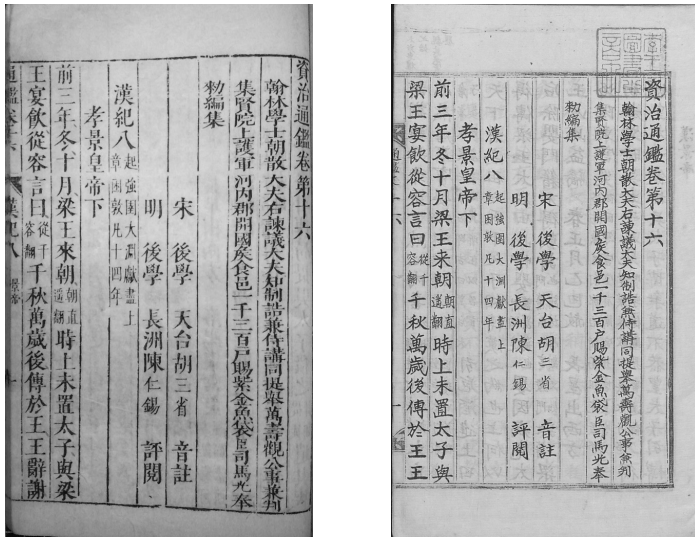 資治通鑑卷第十六
翰林學士朝散大夫右諫議大夫知制誥兼侍講同提舉萬壽觀公事兼判
集賢院上護軍河內郡開國矦食邑一千三百戶賜紫金魚袋臣司馬光奉
勑編集
宋 後學 天台胡三省 音註
明 後學 長洲陳仁錫 評閱
漢紀八 起強圉大淵獻盡上章困敦凡十四年
孝景皇帝下
前三年冬十月梁王來朝朝直遥翻時上未置太子與梁
王宴飲從容言曰從千容翻千秋萬歲後傳於王王辭謝
通鑑卷十六 漢紀八
資治通鑑卷第十六
翰林學士朝散大夫右諫議大夫知制誥兼侍講同提舉萬壽觀公事兼判
集賢院上護軍河內郡開國矦食邑一千三百戶賜紫金魚袋臣司馬光奉
勑編集
宋 後學 天台胡三省 音註
明 後學 長洲陳仁錫 評閱
漢紀八 起強圉大淵獻盡上章困敦凡十四年
孝景皇帝下
前三年冬十月梁王來朝朝直遥翻時上未置太子與
梁王宴飲從容言曰從千容翻千秋萬歲後傳於王王
通鑑 十六